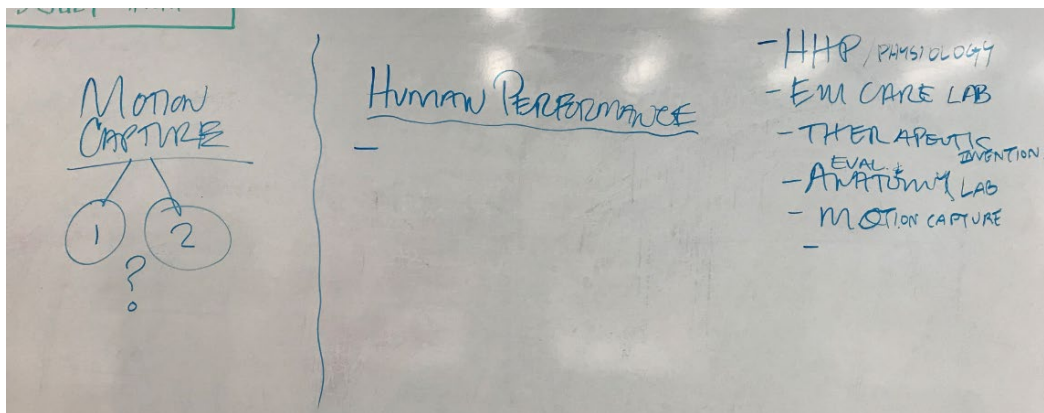 MOTION
CAPTURE
1 2
?
HUMAN PERFORMANCE
-
- HHP/PHYSIOLOGY
- EM CARE LAB
- THERAPEUTIC
EVAL. + INVENTION
- ANATOMY LAB
- MOTION CAPTURE
-